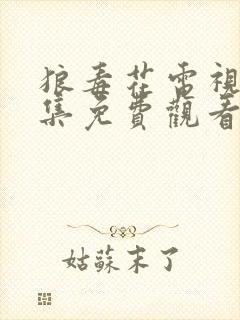 狼毒花電視
集免費觀看
姑蘇末了